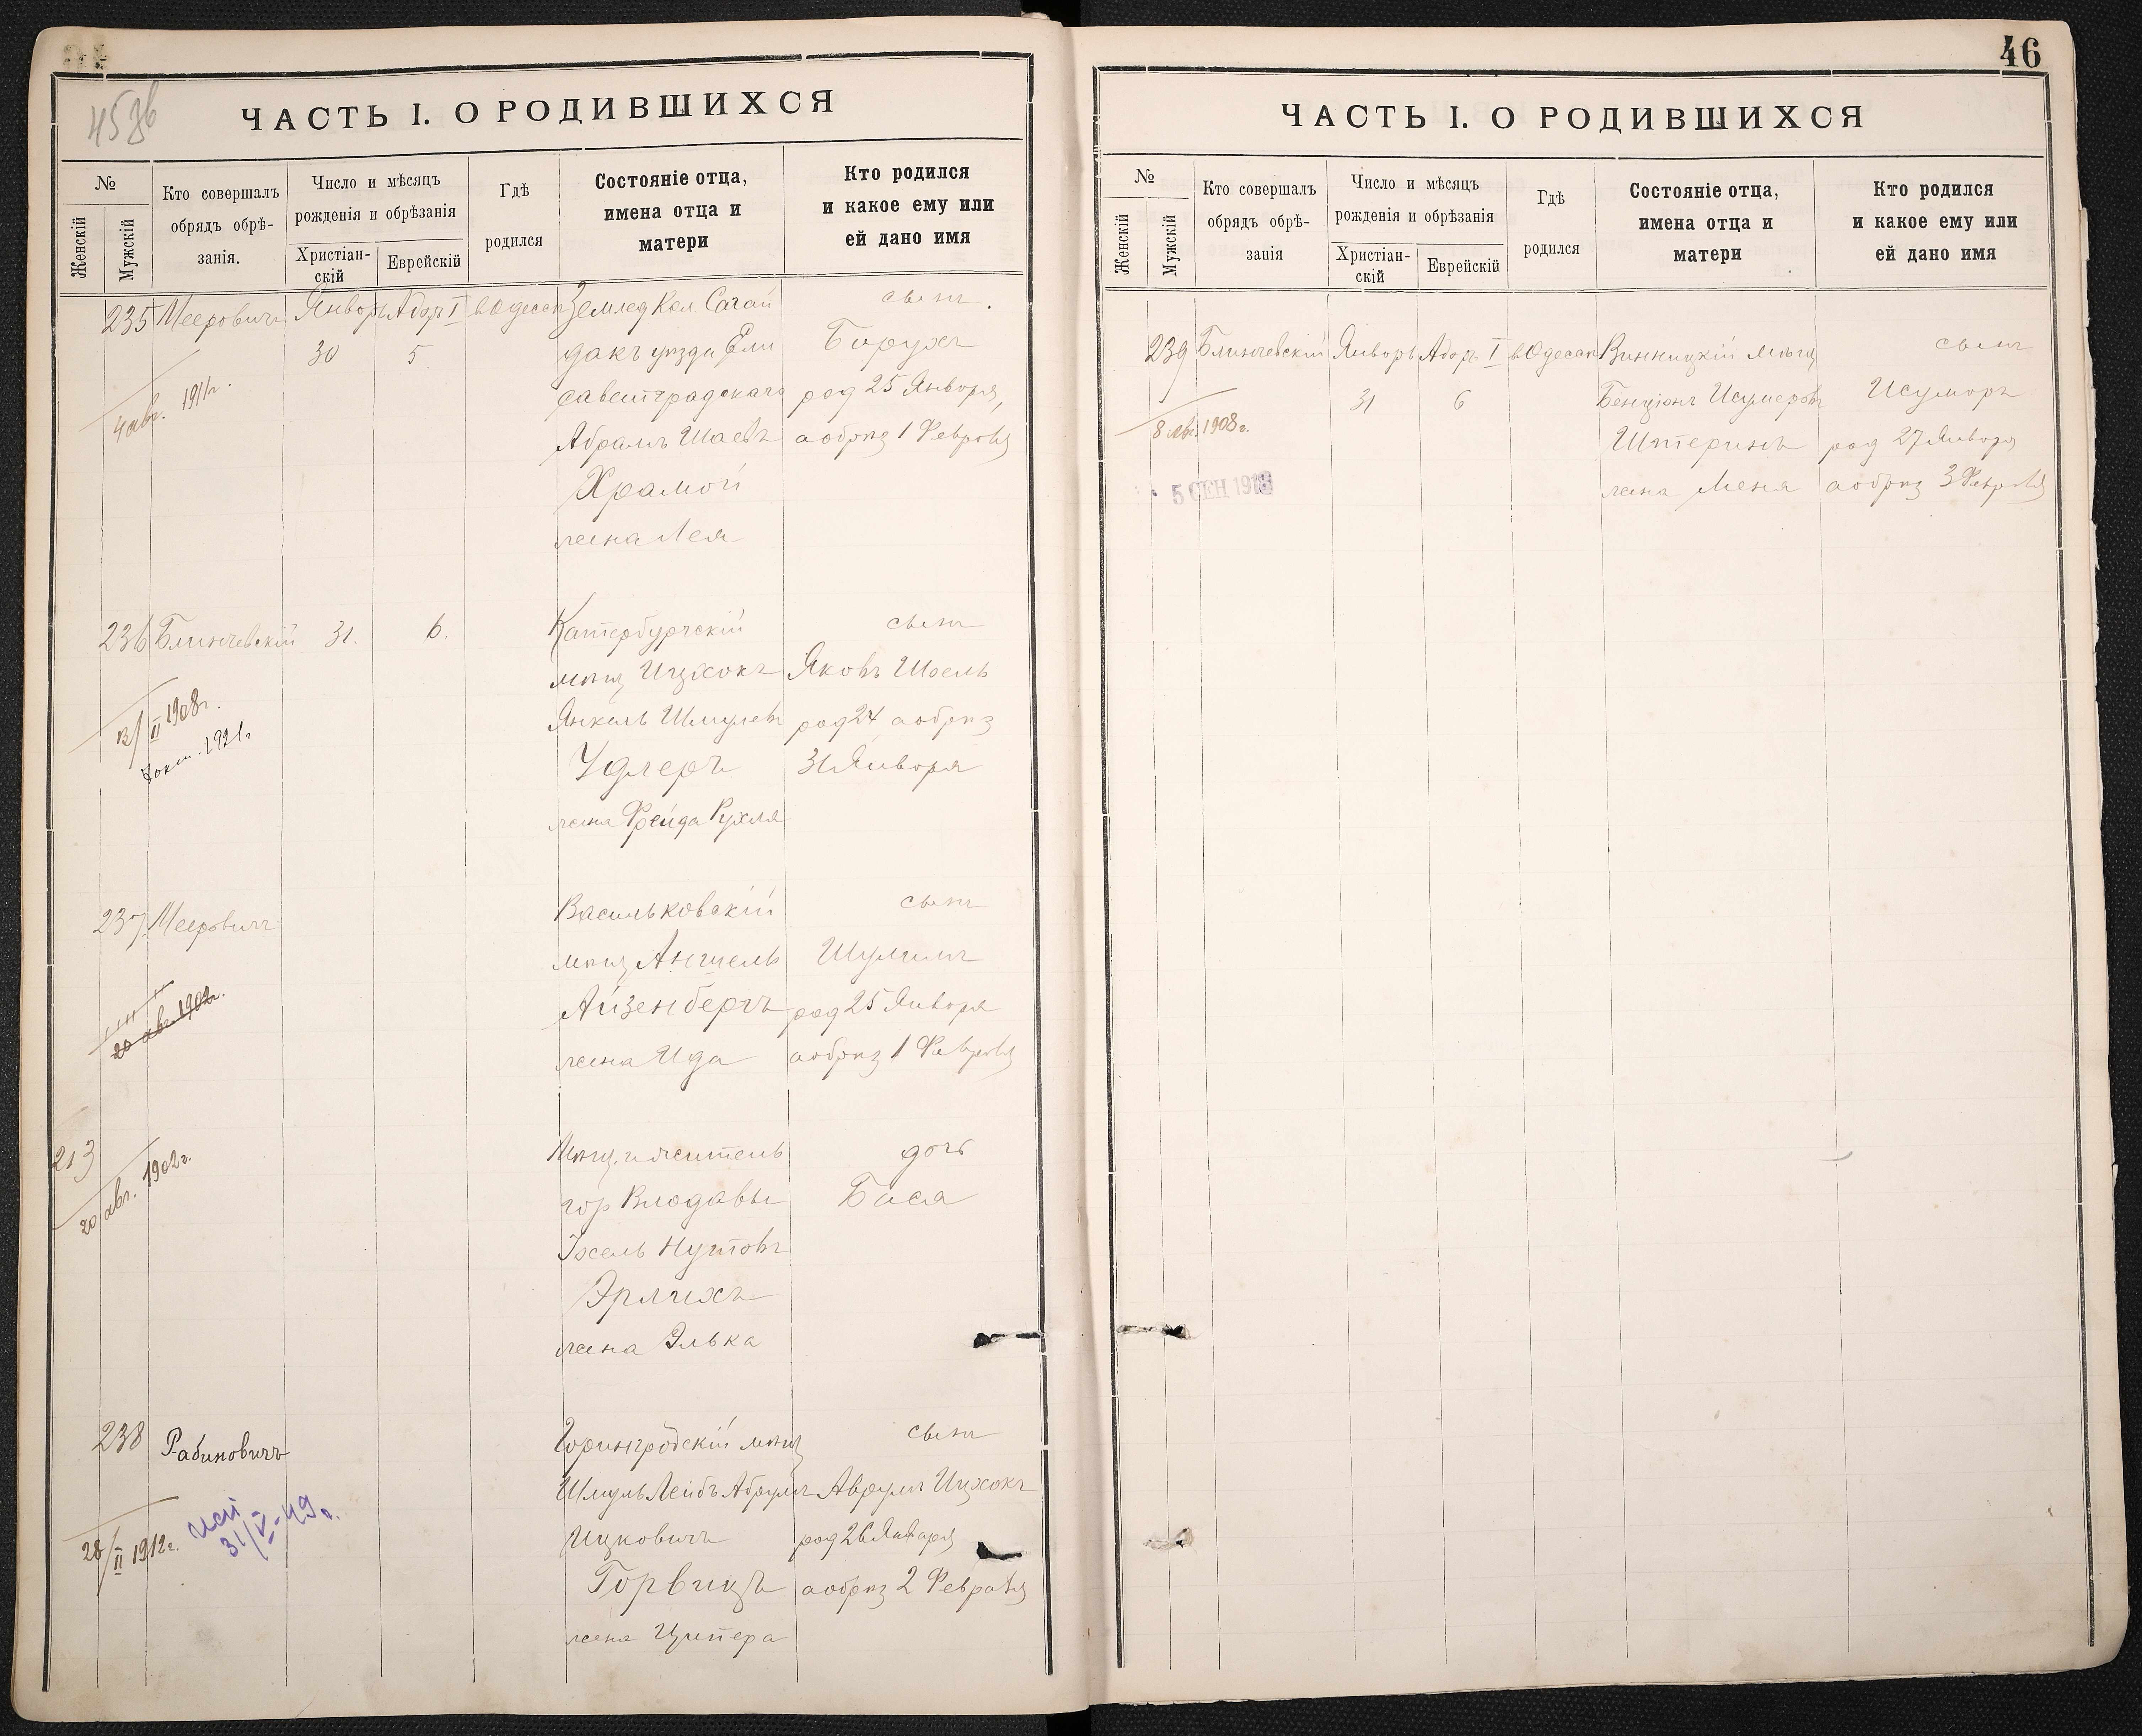 45 зв
ЧАСТЬ I. О РОДИВШИХСЯ
№
Женскій
Мужскій
Кто совершалъ
обрядъ обрѣ-
занія.
Число и мѣсяцъ
рожденія и обрѣзанія
Христіан-
скій
Еврейскій
Гдѣ
родился
Состояніе отца,
имена отца и
матери
Кто родился
и какое ему или
ей дано имя
235 Мееровичъ Январ Адар I в Одессѣ Землед Кол. Сагай
дакъ уѣзда Ели
саветградскаго
Абрамъ Шаевъ
Храмой
жена Лея
сынъ.
Борухъ
род 25 Января,
а обрѣз 1 Февраля
30 5
4 авг. 1911 г.
236 Блинчевскій 31. 6. Катербургскій
мѣщ Ицхокъ
Янкель Шмулев
Удлеръ
жена Фрейда Рухля
сынъ
Яковъ Шоель
род 24 а обрѣз
31 Января
12/II 1908 г.
7 окт. 1921 г
237. Мееровичъ Васильковскій
мѣщ Аншель
Айзенбергъ
жена Ида
сынъ
Шулимъ
род 25 Января
а обрѣз 1 Февраля
20 авг. 1902 г.
213 Мѣщ. и житель
гор Влодавы
Іосель Нутовъ
Эрлихъ
жена Элька
дочь
Бася
20 авг. 1902 г.
238 Рабиновичъ мѣщ
Шмуль Лейбъ Абрумъ
Ицковичъ
Горвицъ
жена Ципера
сынъ
Аврумъ Ицхокъ
род 26 Января
а обрѣз 2 Февраля
28/II 1912 г.
31/V-49 г.
46
ЧАСТЬ I. О РОДИВШИХСЯ
№
Женскій
Мужскій
Кто совершалъ
обрядъ обрѣ-
занія
Число и мѣсяцъ
рожденія и обрѣзанія
Христіан-
скій
Еврейскій
Гдѣ
родился
Состояніе отца,
имена отца и
матери
Кто родился
и какое ему или
ей дано имя
239 Блинчевскій Январь Адаръ I в Одессѣ Винницкій мѣщ
Бенціонъ Исумеров
Штеринъ
жена Меня
сынъ
Исумеръ
род 27 Января
а обрѣз 3 Февраля
31 6
8 авг. 1908 г.
5 СЕН 1913